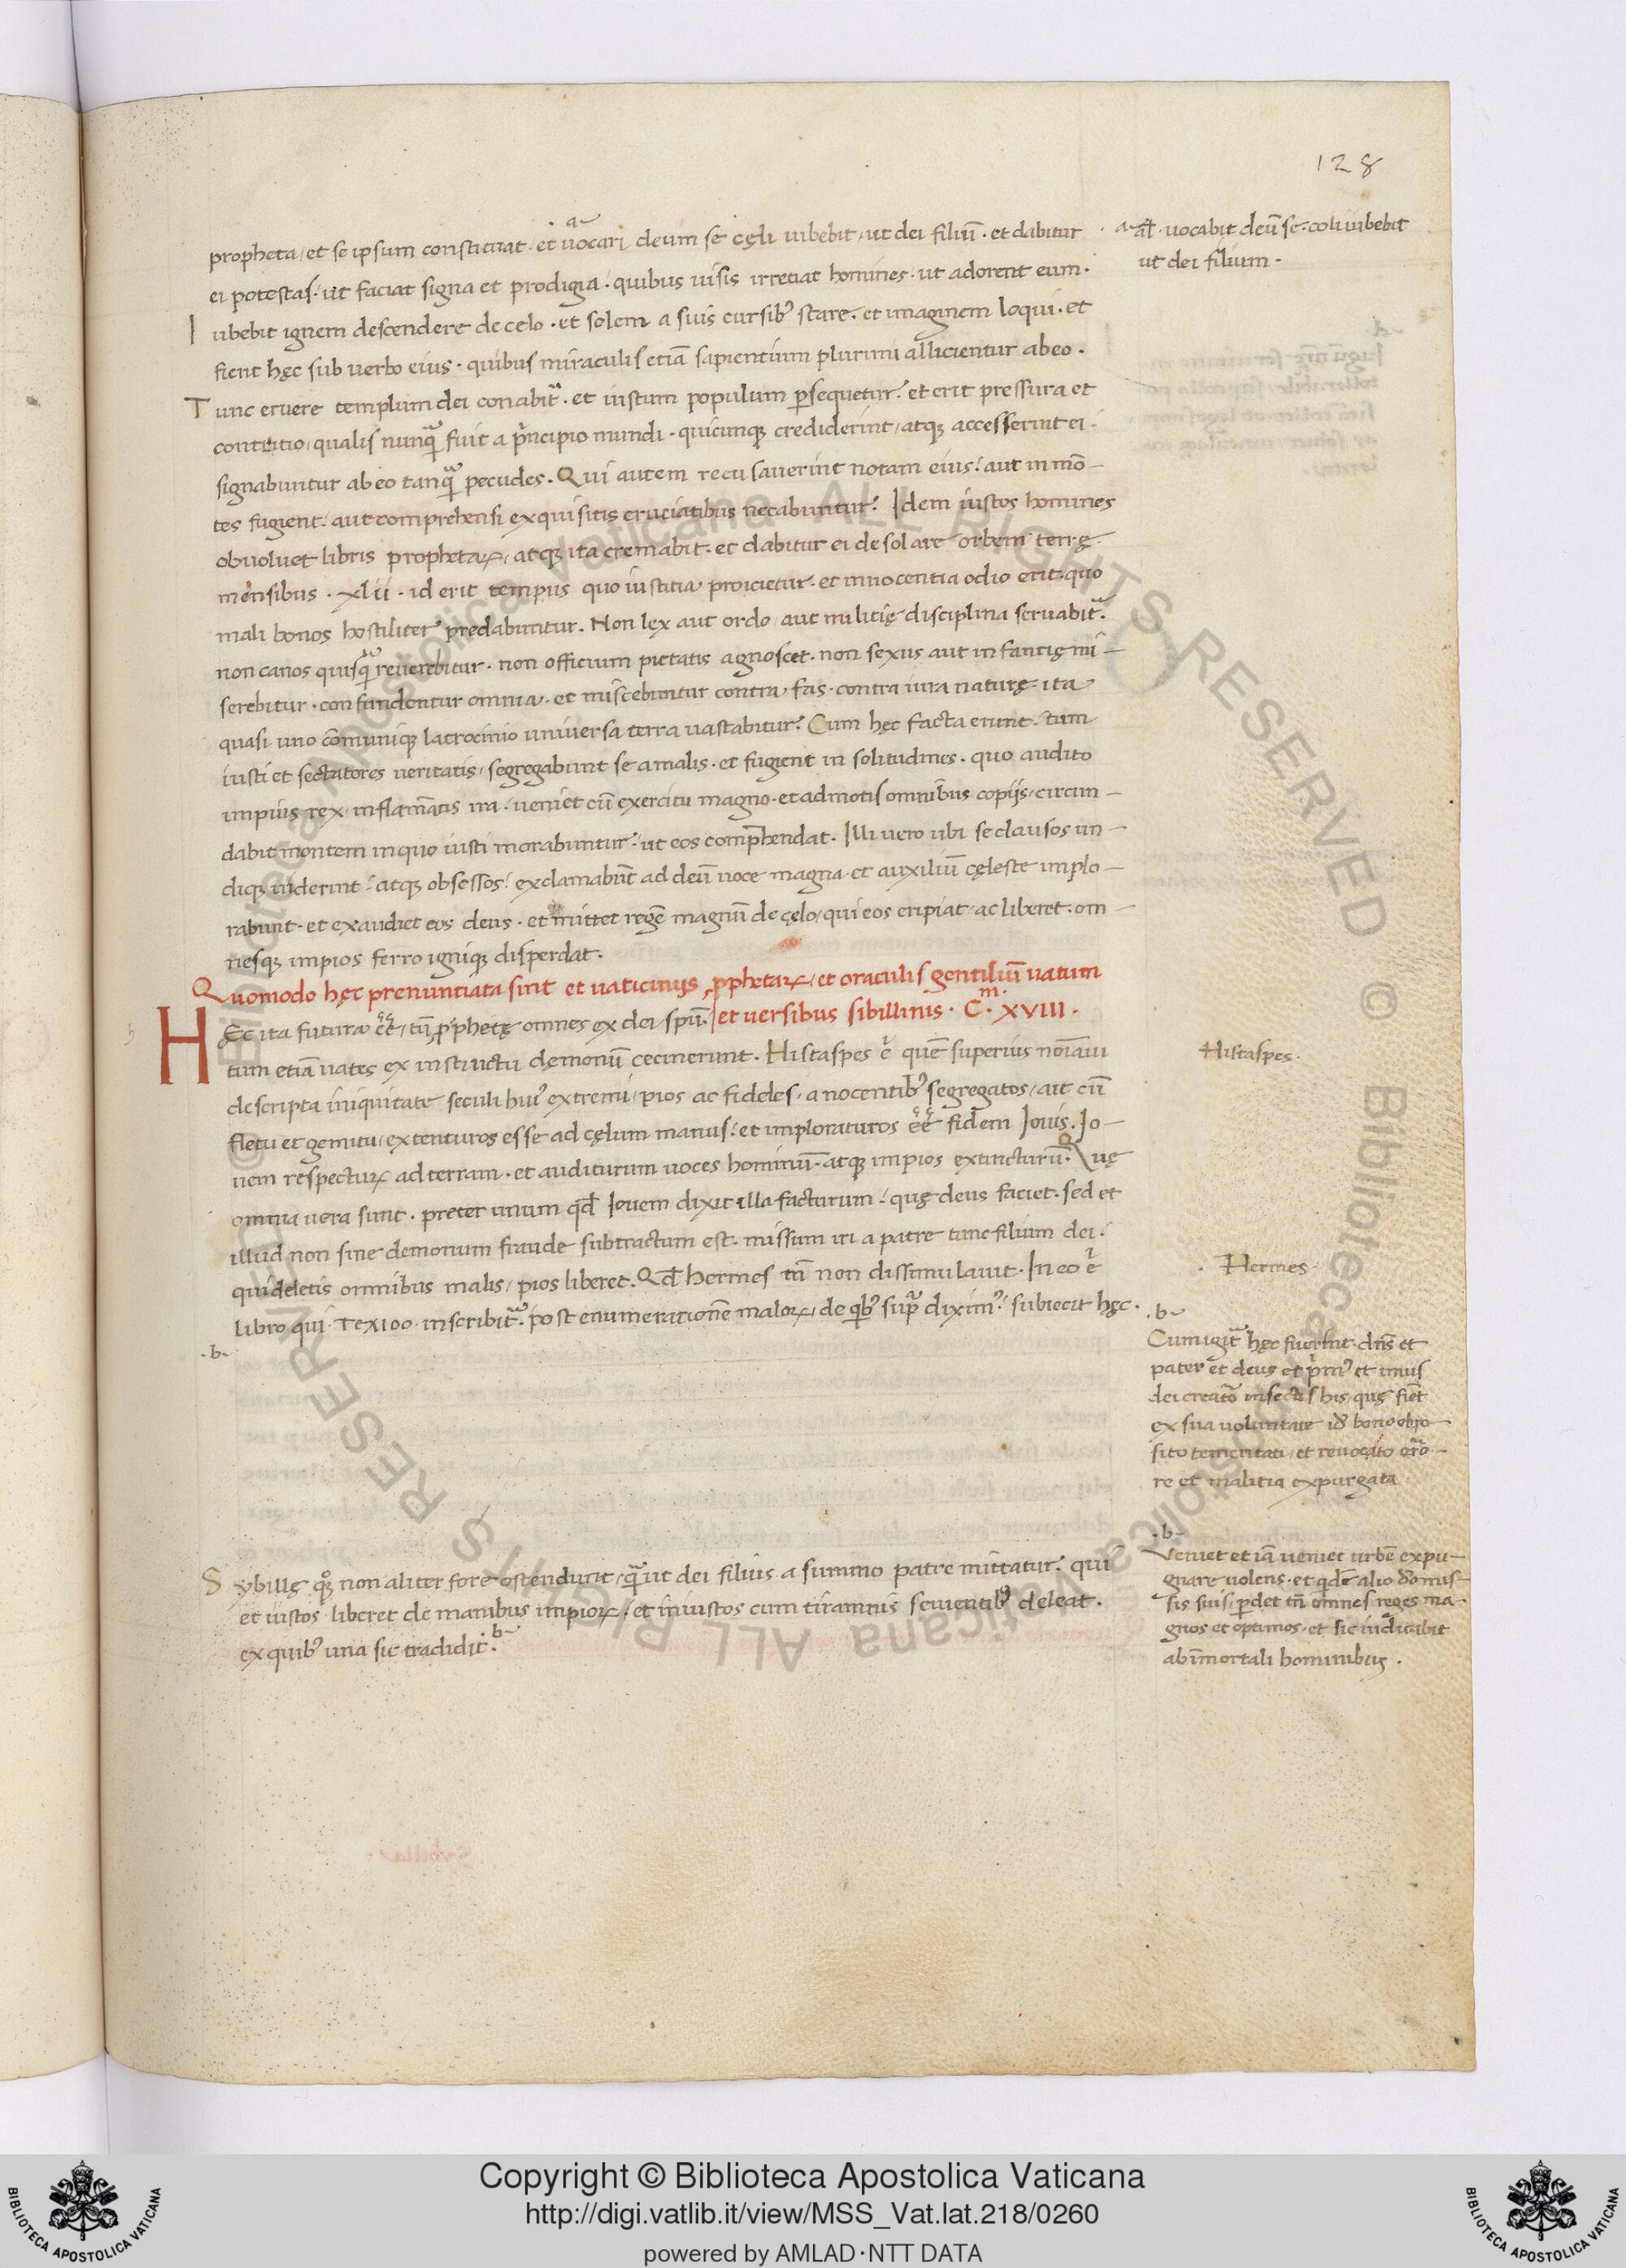 128
propheta, et se ipsum constituat · et uocari deum se cęli iubebit, ut dei filiū · et dabitur
ei potestas · ut faciat signa et prodigia · quibus uisis irretiat homines · ut adorent eum ·
Iubebit ignem descendere de celo · et solem a suis cursibꝰ stare · et imaginem loqui · et
fient hęc sub uerbo eius · quibus miraculis etiā sapientium plurimi allicientur ab eo ·
Tunc eruere templum dei conabit᷑ · et iustum populum ꝑsequetur · et erit pressura et
contritio, qualis nunq̃ fuit a pͥncipio mundi · quicunqꝫ crediderint, atqꝫ accesserint ei ·
signabuntur ab eo tanq̃ pecudes · Qui autem recusauerint notam eius · aut in mō-
tes fugient · aut comprehensi exquisitis cruciatibus necabuntur · Idem iustos homines
obuoluet libris prophetaꝝ, atqꝫ ita cremabit · et dabitur ei desolare orbem terrę
mensibus · xlii · id erit tempus quo iustitia proicietur · et innocentia odio erit · quo
mali bonos hostiliter predabuntur · Non lex aut ordo, aut militię disciplina seruabit᷑ ·
non canos quisq̃ reuerebitur · non officium pietatis agnoscet · non sexus aut infantię mi-
serebitur · confundentur omnia · et miscebuntur contra fas · contra iura naturę · ita
quasi uno cōmuniqꝫ latrocinio uniuersa terra uastabitur · Cum hęc facta erunt · tum
iusti et sectatores ueritatis, segregabunt se a malis · et fugient in solitudines · quo audito
impius rex, inflam̄atis ira · ueniet cū exercitu magno · et admotis omnibus copijs, circun-
dabit montem in quo iusti morabuntur · ut eos comp̄hendat · Illi uero ubi se clausos un-
diqꝫ uiderint · atqꝫ obsessos · exclamabūt ad deū uoce magna · et auxiliū cęleste implo-
rabunt · et exaudiet eos deus · et mittet regē magnū de cęlo, qui eos eripiat, ac liberet · om-
nesqꝫ impios ferro igniqꝫ disperdat ·
Quomodo hęc prenuntiata sint et uaticinijs ꝓphetaꝝ, et oraculis gentiliū uatum
et uersibus sibillinis · Cᵐ · XVIII ·
HEc ita futura eē, tū ꝓphetę omnes ex dei spū ·
tum etiā uates ex instructu demonū cecinerunt · Histaspes ē quē superius noīaui
descripta iniquitate seculi huiꝰ extremi, pios ac fideles, a nocentibꝰ segregatos, ait cū
fletu et gemitu, extenturos esse ad cęlum manus · et imploraturos eē fidem Iouis · Io-
uem respectuꝝ ad terram · et auditurum uoces hominū · atqꝫ impios extincturū · Quę
omnia uera sunt · preter unum qđ Iouem dixit illa facturum · quę deus faciet · sed et
illud non sine demonum fraude subtractum est · missum iri a patre tunc filium dei ·
qui deletis omnibus malis, pios liberet · Qđ hermes tn̄ non dissimulauit · In eo ē
libro qui · Texioo · inscribit᷑ · post enumerationē maloꝝ, de qͥbꝰ supͣ diximꝰ · subiecit hęc ·
· b ·
Sybillę qͦꝫ non aliter fore ostendunt, q̃ ut dei filius a summo patre mittatur · qui
et iustos liberet de manibus impioꝝ · et iniustos cum tirannis seuientibꝰ deleat ·
ex quibꝰ una sic tradidit · b
a al̄ · uocabit deū se · coli iubebit
ut dei filium ·
Histaspes ·
· Hermes ·
· b ·
Cum igit᷑ hęc fuerint · dn̄s et
pater et deus et pͥmꝰ et unus
dei creator̄ insectis his, quę fiēt
ex sua uoluntate id bono oppo-
sito temeritati, et reuocato erro-
re et malitia expurgata
· b ·
Veniet et iā ueniet urbē expu-
gnare uolens · et qͥdē alio domus-
sis suis ꝑdet tn̄ omnes reges ma-
gnos et optimos, et sic iudicabit᷑
ab īmortali hominibus ·
Copyright © Biblioteca Apostolica Vaticana
http://digi.vatlib.it/view/MSS_Vat.lat.218/0260
powered by AMLAD·NTT DATA
BIBLIOTECA APOSTOLICA VATICANA
BIBLIOTECA APOSTOLICA VATICANA
© Biblioteca Apostolica Vaticana ALL RIGHTS RESERVED
© Biblioteca Apostolica Vaticana ALL RIGHTS RESERVED